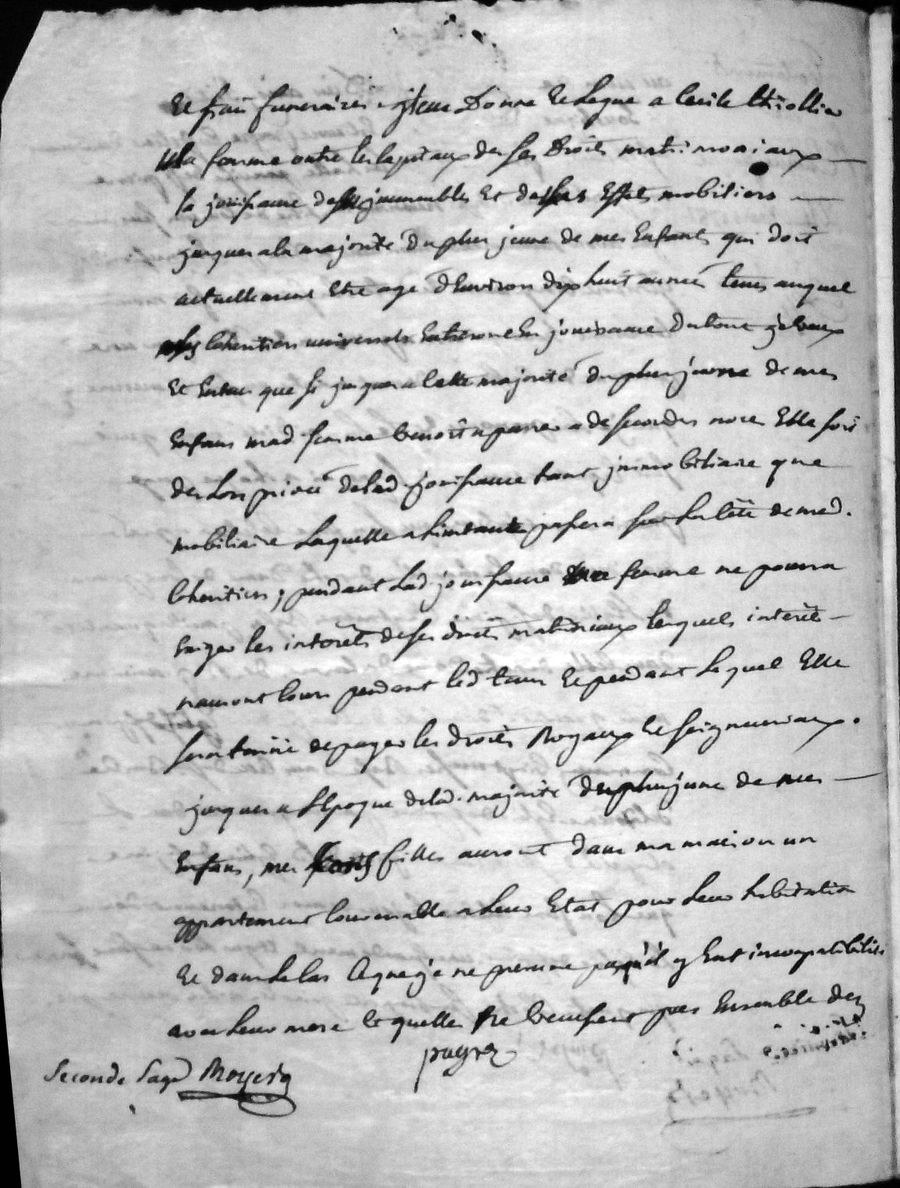 et frais funeraires. je donne et legue a Cecile thiollie
Ma femme outre les capitaux de ses droits matrimoniaux
la jouissance de mes immeubles et de mes effets mobiliers
jusques a la majorité du plus jeune de mes Enfants qui doit
actuellement etre agé d'Environ dix huit années tems auquel
mes heritiers universels Entreront En jouissance du tout je veux
et Entens que si jusques a cette majorité du plus jeune de mes
Enfans mad. femme venoit a passer a de secondes noces Elle soit
des lors privée de lad. jouissance tant jmmobiliaire que
mobiliaire laquelle a l'instant passera sur la tete de med.
heritiers, pendant lad. jouissance femme ne pourra
Exiger les intérêts de ses droits matrimoniaux lesquels intérêts
n'auront cours pendant led. tems et pendant lequel Elle
sera tenüe de payer les droits Royaux et seigneuriaux.
jusques a l'Epoque de lad. majorité du plus jeune de mes
Enfans, mes filles auront dans ma maison un
appartement convenable a leur Etat pour leur habitation
et dans le cas a que je ne presume pas qu'il y Eut incompatibilité
avec leur mere et quelles ne veuissent pas Ensemble des
payra
Seconde page